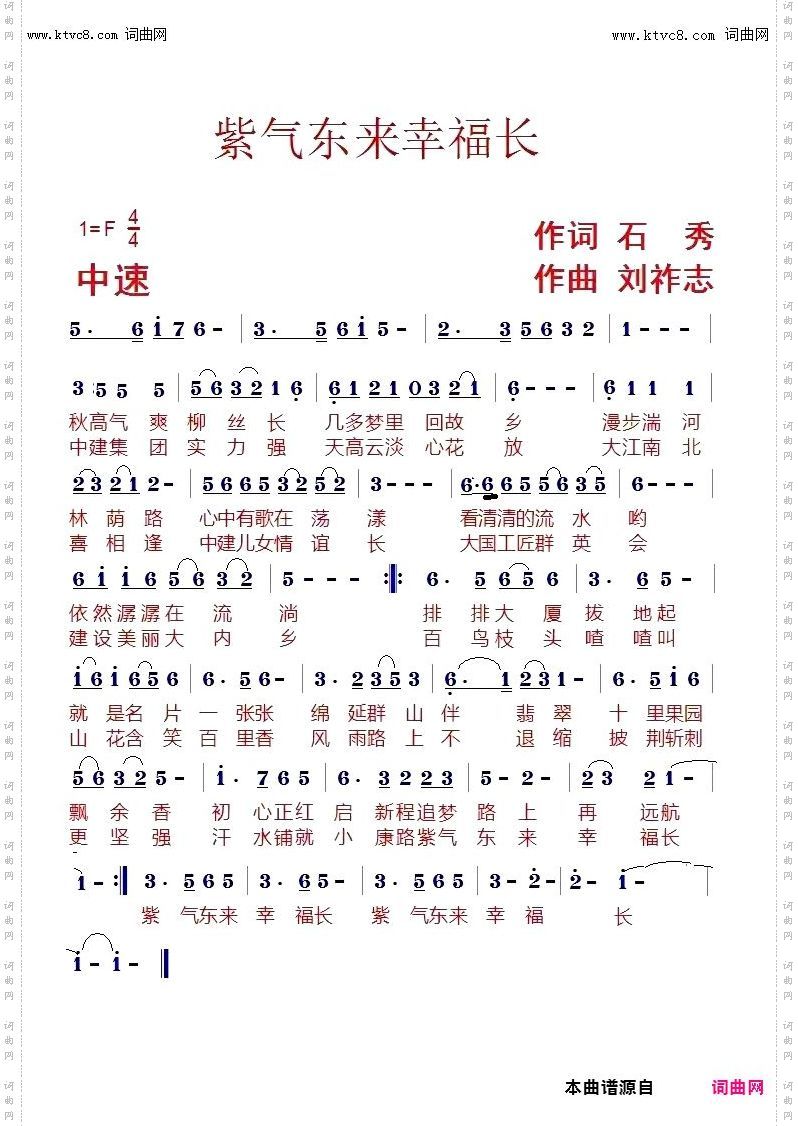 www.ktvc8.com 词曲网
www.ktvc8.com 词曲网
紫气东来幸福长
1=F 4/4
作词 石 秀
中速
作曲 刘祚志
5· 6 i 7 6 - | 3· 5 6 i 5 - | 2· 3 5 6 3 2 | 1 - - - |
3 5 5 5 | 5 6 3 2 1 6 | 6 1 2 1 0 3 2 1 | 6 - - - | 6 1 1 1 |
秋高气 爽 柳 丝 长 几多梦里 回故 乡 漫步湍 河
中建集 团 实 力 强 天高云淡 心花 放 大江南 北
2 3 2 1 2 - | 5 6 6 5 3 2 5 2 | 3 - - - | 6· 6 6 5 5 6 3 5 | 6 - - - |
林 荫 路 心中有歌在 荡 漾 看清清的流 水 哟
喜 相 逢 中建儿女情 谊 长 大国工匠群 英 会
6 i i 6 5 6 3 2 | 5 - - - :‖: 6· 5 5 6 5 | 3· 6 5 |
依然潺潺在 流 淌 排 排大 厦 拔 地起
建设美丽大 内 乡 百 鸟枝 头 喳 喳叫
i 6 i 6 5 6 | 6· 5 6 - | 3· 2 3 5 3 | 6· 1 2 3 1 - | 6· 5 i 6 |
就 是名 片 一 张张 绵 延群 山 伴 翡 翠 十 里果园
山 花含 笑 百 里香 风 雨路 上 不 退 缩 披 荆斩刺
5 6 3 2 5 - | i· 7 6 5 | 6· 3 2 2 3 | 5 - 2 - | 2 3 2 1 - |
飘 余 香 初 心正红 启 新程追梦 路 上 再 远航
更 坚 强 汗 水铺就 小 康路紫气 东 来 幸 福长
1 - :‖ 3· 5 6 5 | 3· 6 5 - | 3· 5 6 5 | 3 - 2 - | 2 - i - |
紫 气东来 幸 福长 紫 气东来 幸 福 长
i - i - ‖
本曲谱源自 词曲网